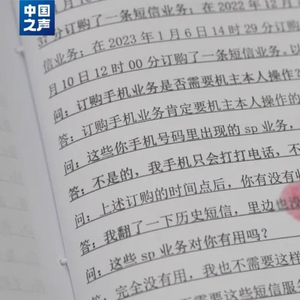 中国之声
月16日
分订购了一条短信业务；在 2022 年 12 月
37 分订购了一条短信业务；在 2022 年 12
信业务；在 2023 年 1 月 6 日 14 时 29 分
月 10 日 12 时 00 分订购了一条短信业务
问：订购手机业务是否需要机主本人操作
答：订购手机业务肯定要机主本人操作的
问：这些你手机号码里出现的 sp 业务，
答：不是的，我手机只会打打电话，不
问：上述订购的时间点后，你有没有收
答：我翻了一下历史短信，里边也没
问：这些 sp 业务对你有用吗？
答：完全没有用，我也不需要这样
要这些短信服